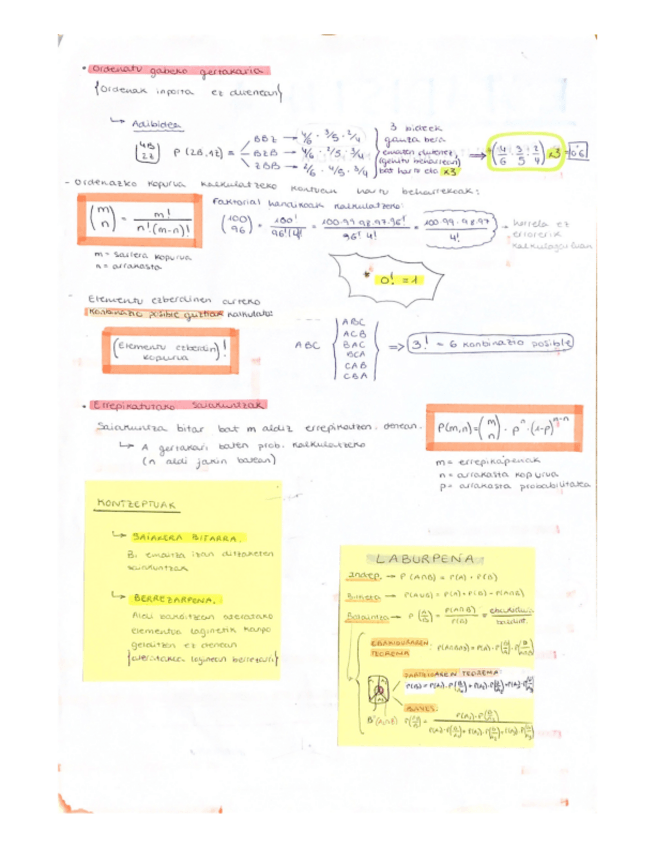 • Ordenatu gabeko gertakaria
{Ordenak inporta ez duenean}
↳ Adibidea
(4B 2Z) P(2B,1Z) =
BBZ → 4/6 · 3/5 · 2/4
BZB → 4/6 · 2/5 · 3/4
ZBB → 2/6 · 4/5 · 3/4
3 bideek
gauza bera
ematen dutenez,
bat hartu eta x3
⇒ (4/6 · 3/5 · 2/4) x3 = 0'6
- Ordenazko kopurua kalkulatzeko kontuan hartu beharrekoak:
(m n) = m! / n!·(m-n)!
Faktorial handikoak kalkulatzeko:
(100 96) = 100! / 96! 4! = 100·99·98·97·96! / 96! 4! = 100·99·98·97 / 4! → horrela ez
errorerik
kalkulagailuan
m = saiera kopurua
n = arrakasta
* 0! = 1
- Elementu ezberdinen aurreko
konbinazio posible guztiak kalkulatu:
(Elementu ezberdin kopurua)!
ABC
ABC
ACB
BAC
BCA
CAB
CBA
⇒ 3! = 6 konbinazio posible
• Errepikaturako saiakuntzak
Saiakuntza bitar bat m aldiz errepikatzen denean.
↳ A gertakari baten prob. kalkulatzeko
(n aldi jakin batean)
P(m,n) = (m n) · pⁿ · (1-p)ᵐ⁻ⁿ
m = errepikapenak
n = arrakasta kopurua
p = arrakasta probabilitatea
KONTZEPTUAK
↳ SAIAKERA BITARRA.
Bi emaitza izan ditzaketen
saiakuntzak
↳ BERREZARPENA.
Aldi bakoitzean ateratako
elementua laginetik kanpo
gelditzen ez denean
LABURPENA
Indep. → P(A∩B) = P(A) · P(B)
Bilketa → P(A∪B) = P(A) + P(B) - P(A∩B)
Baldintza → P(A/B) = P(A∩B) / P(B)
EBAKIDURAREN
TEOREMA
TEOREMA:
BAYES: